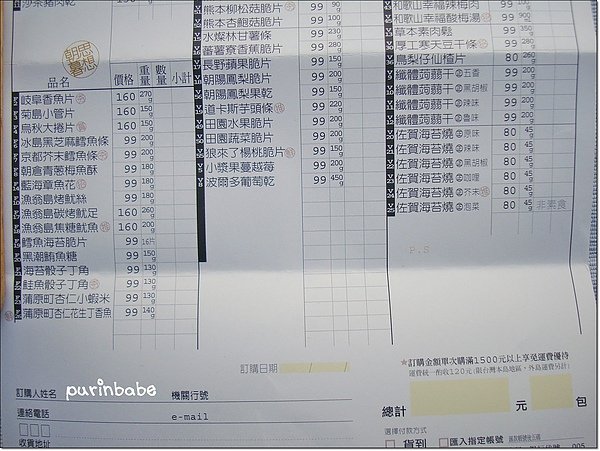 沙茶豬肉乾
朝思
暮想
品名 價格 重量 數量 小計
岐阜香魚片 160 270g
菊島小管片 160 150g
烏秋大捲片 160 150g
冰島黑芝麻鱈魚條 99 200g
京都芥末鱈魚條 99 200g
朝倉青蔥梅魚酥 99 180g
藍海章魚花 99 180g
漁翁島烤魷絲 99 180g
漁翁島碳烤魷足 160 260g
漁翁島焦糖魷魚 160 200g
鱈魚海苔脆片 99 16片
黑潮鮪魚糖 99 190g
海苔骰子丁角 99 130g
鮭魚骰子丁角 99 130g
蒲原町杏仁小蝦米 99 130g
蒲原町杏仁花生丁香魚 99 140g
熊本柳松菇脆片 99 90g
熊本杏鮑菇脆片 99
水燦林甘薯條 99 230g
蕃薯寮香蕉脆片 99 200g
長野蘋果脆片 99 150g
朝陽鳳梨脆片 99 200g
朝陽鳳梨乾 99 200g
道卡斯芋頭條 99 200g
田園水果脆片 99 200g
田園蔬菜脆片 99 200g
狼來了楊桃脆片 99 150g
小漿果蔓越莓 99 200g
波爾多葡萄乾 99 450g
和歌山幸福辣梅肉 99
和歌山幸福酸梅湯 99
草本素肉鬆 99 350g
厚工寒天豆干條 99 200g
鳥梨仔仙楂片 80
纖體蒟蒻干 五香 99 200g
纖體蒟蒻干 黑胡椒 99 200g
纖體蒟蒻干 辣味 99 200g
纖體蒟蒻干 魯味 99 200g
佐賀海苔燒 原味 80 45g
佐賀海苔燒 辣味 80 45g
佐賀海苔燒 黑胡椒 80 45g
佐賀海苔燒 咖哩 80 45g
佐賀海苔燒 芥末 80 45g
佐賀海苔燒 泡菜 80 45g 非素食
P.S
訂購日期 / /
★訂購金額單次購滿1500元以上享免運費優待
運費統一酌收120元(限台灣本島地區,外島運費另計)
訂購人姓名 機關行號
purinbabe
連絡電話 e-mail
收貨地址
總計 元 包
選擇付款方式
貨到 匯入指定帳號
005